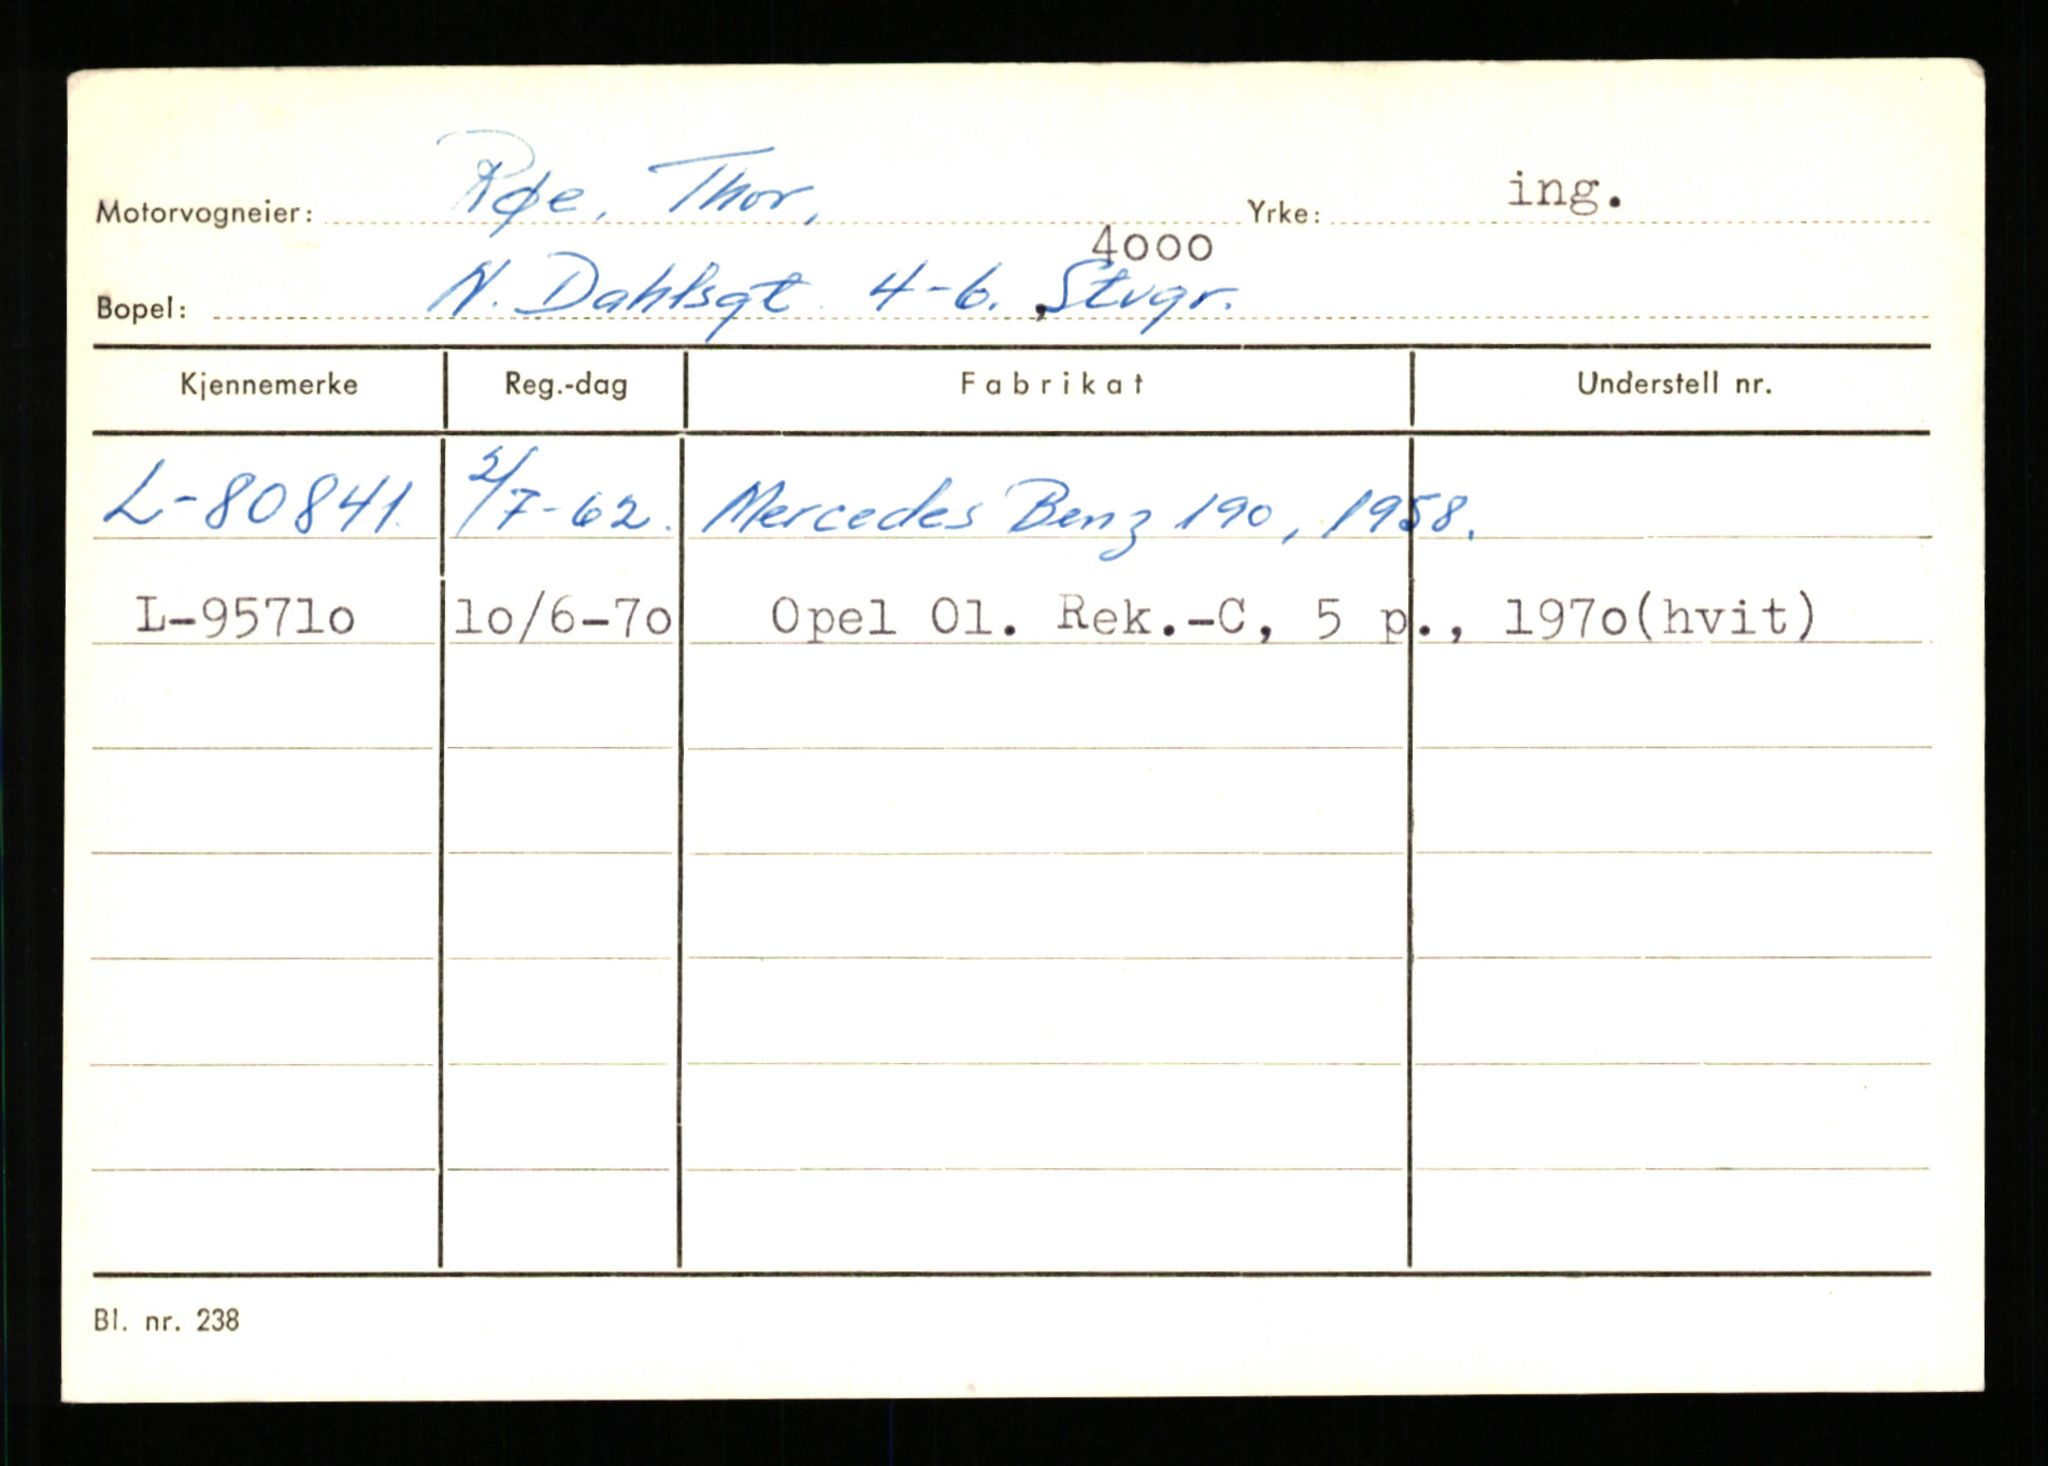 Motorvogneier: Røe, Thor, Yrke: ing.
4ooo
Bopel: N. Dahlsgt 4-6. , Stvgr.
Kjennemerke Reg.-dag Fabrikat Understell nr.
L-80841. 2/7-62. Mercedes Benz 190, 1958.
L-957lo lo/6-7o Opel Ol. Rek.-C, 5 p., 197o(hvit)
Bl. nr. 238